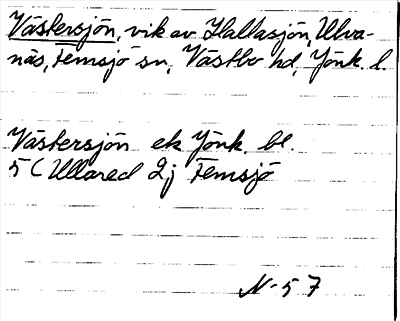 Västersjön, vik av Hallasjön, Ulva-
näs, Femsjö sn, Västbo hd, Jönk. l.
Västersjön ek Jönk. bl.
5 C Ullared 2j Femsjö
N-57